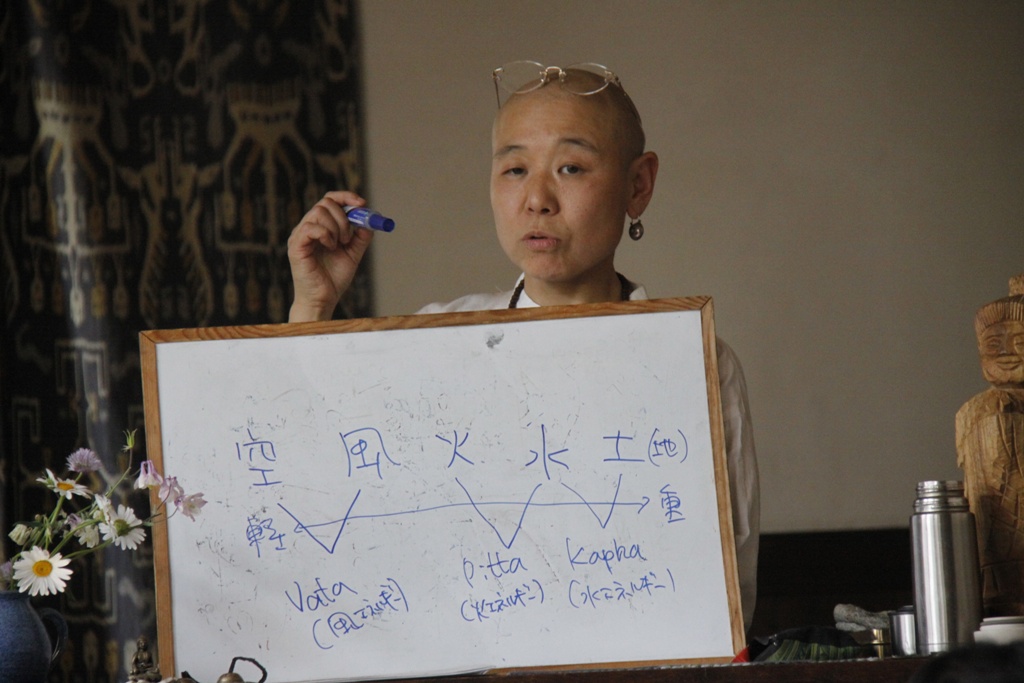 空 風 火 水 土(地)
軽 重
Vata pitta Kapha
(風エネルギー) (火エネルギー) (水エネルギー)